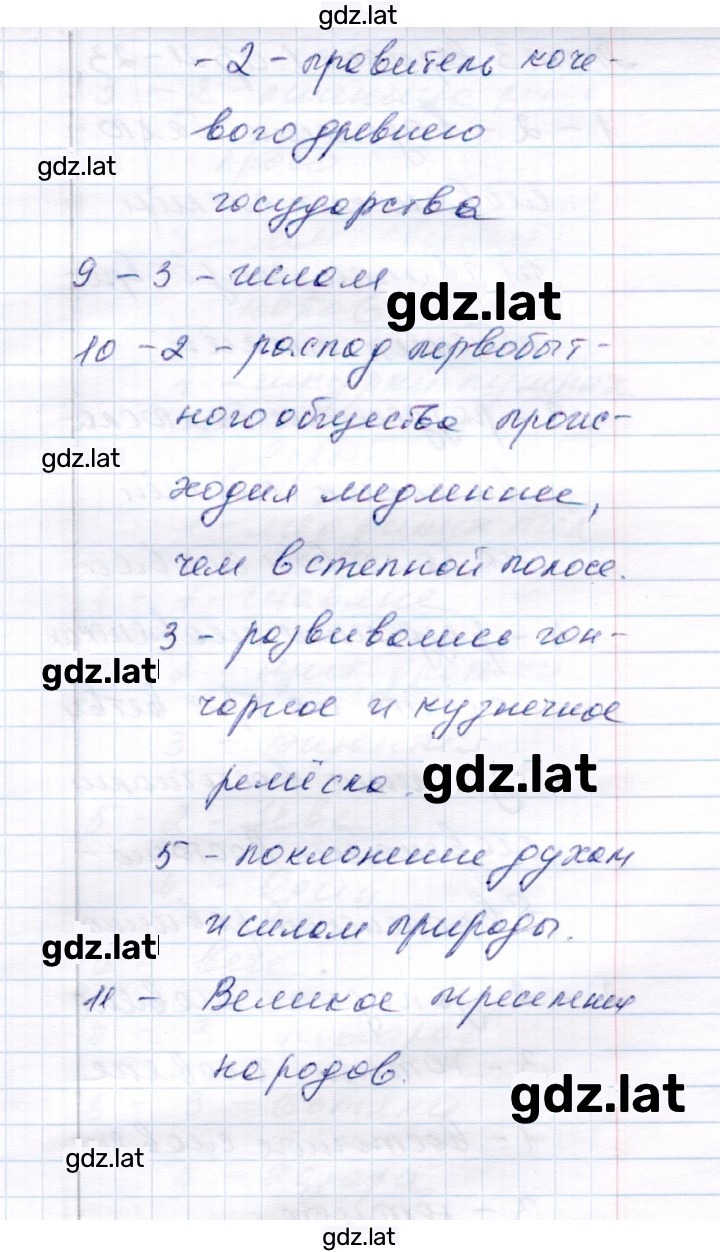 gdz.lat
- 2 - правитель коче-
вого древнего
gdz.lat
государства
9 - 3 - ислам
gdz.lat
10 - 2 - распад первобыт-
ного общества проис-
gdz.lat
ходил медленнее,
чем в степной полосе.
3 - развивались гон-
gdz.lat
чарное и кузнечное
ремёсла.
gdz.lat
5 - поклонение духам
и силам природы.
gdz.lat
11 - Великое переселение
народов.
gdz.lat
gdz.lat
gdz.lat